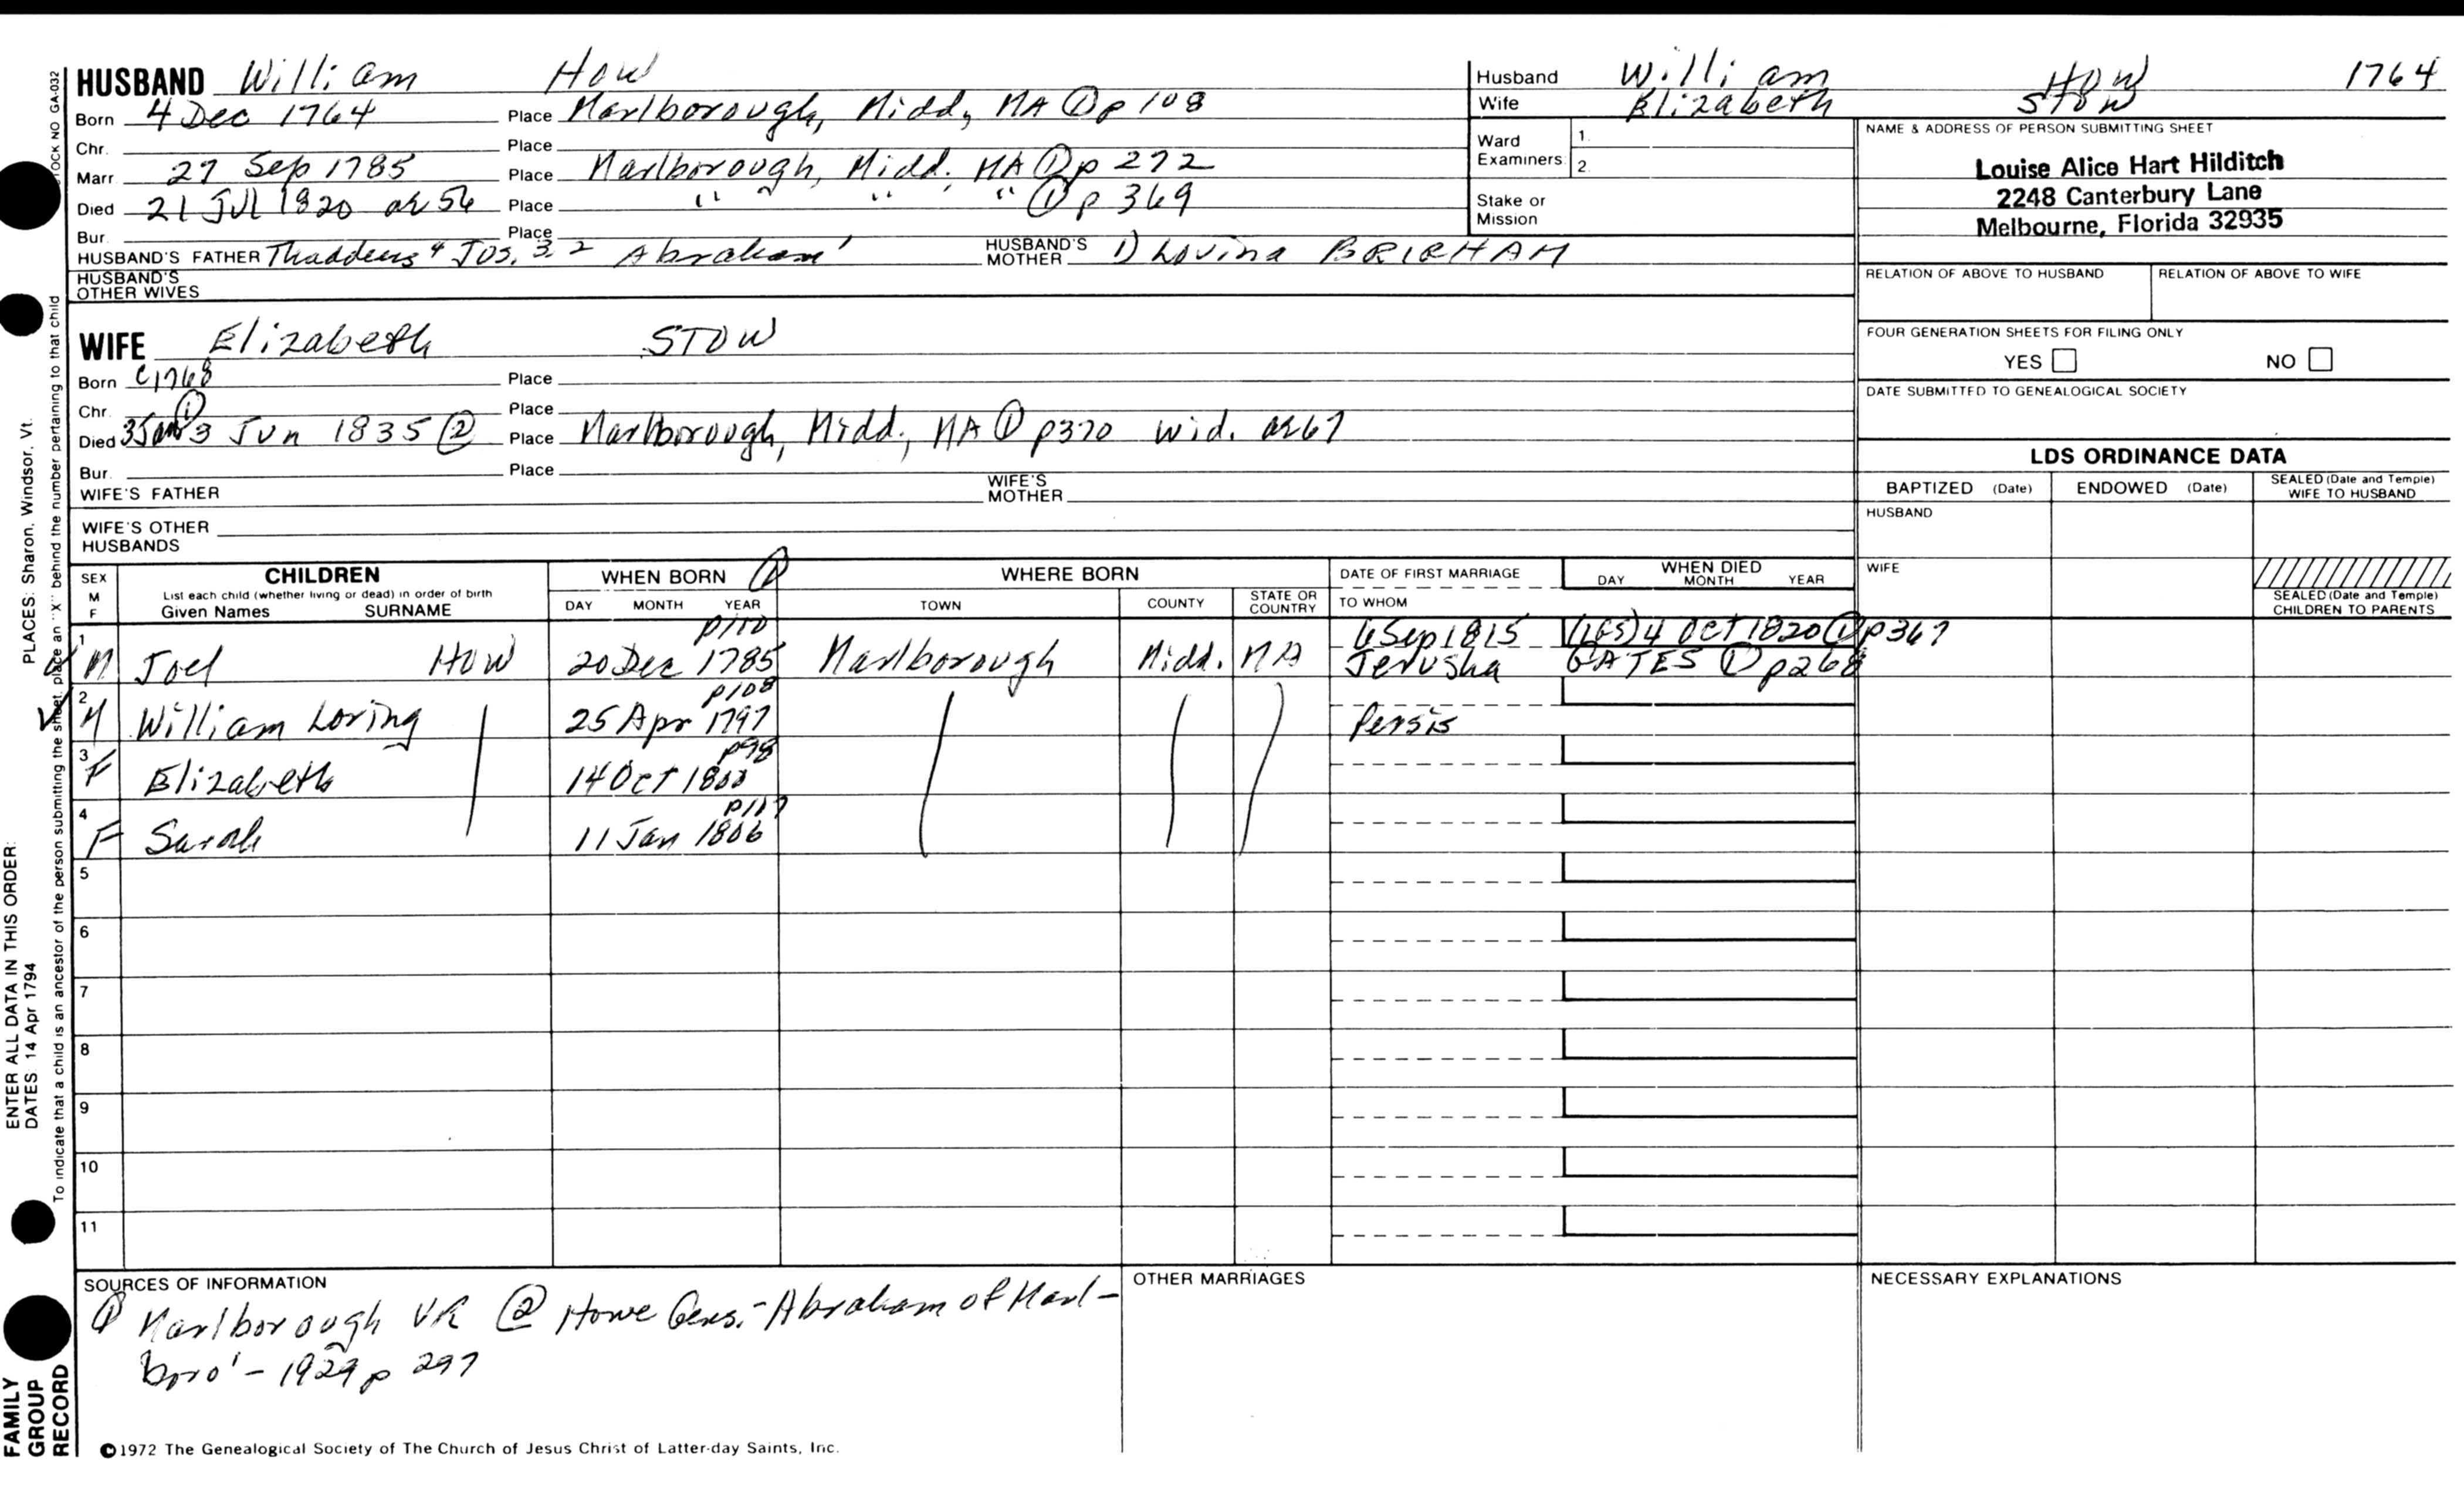 HUSBAND William How
Born 4 Dec 1764 Place Marlborough, Midd, MA ① p 108
Chr. Place
Marr 27 Sep 1785 Place Marlborough, Midd. MA ① p 272
Died 21 Jul 1820 ae 56 Place " " " ① p 369
Bur. Place
HUSBAND'S FATHER Thaddeus 4 Jos, 3, 2 Abraham 1 HUSBAND'S MOTHER 1) Lovina BRIGHAM
HUSBAND'S OTHER WIVES
WIFE Elizabeth STOW
Born c1768 Place
Chr. Place
Died 3 Jan ① 3 Jun 1835 ② Place Marlborough, Midd., MA ① p370 wid. ae 67
Bur. Place
WIFE'S FATHER WIFE'S MOTHER
WIFE'S OTHER HUSBANDS
Husband William How 1764
Wife Elizabeth STOW
Ward Examiners 1.
2.
Stake or Mission
NAME & ADDRESS OF PERSON SUBMITTING SHEET
Louise Alice Hart Hilditch
2248 Canterbury Lane
Melbourne, Florida 32935
RELATION OF ABOVE TO HUSBAND RELATION OF ABOVE TO WIFE
FOUR GENERATION SHEETS FOR FILING ONLY
YES NO
DATE SUBMITTED TO GENEALOGICAL SOCIETY
LDS ORDINANCE DATA
BAPTIZED (Date) ENDOWED (Date) SEALED (Date and Temple) WIFE TO HUSBAND
HUSBAND
WIFE
SEALED (Date and Temple) CHILDREN TO PARENTS
SEX M F
CHILDREN
List each child (whether living or dead) in order of birth
Given Names SURNAME
WHEN BORN ①
DAY MONTH YEAR
WHERE BORN
TOWN COUNTY STATE OR COUNTRY
DATE OF FIRST MARRIAGE
TO WHOM
WHEN DIED
DAY MONTH YEAR
1 p110 6 Sep 1815 4 Oct 1820 ① p367
M Joel How 20 Dec 1785 Marlborough Midd. MA Jerusha GATES ① p268
2 p108
M William Loring 25 Apr 1797 Persis
3 p98
F Elizabeth 14 Oct 1800
4
F Sarah 11 Jan 1806
5
6
7
8
9
10
11
SOURCES OF INFORMATION
① Marlborough VR ② Howe Gens. - Abraham of Marl-
boro' - 1929 p 297
OTHER MARRIAGES
NECESSARY EXPLANATIONS
©1972 The Genealogical Society of The Church of Jesus Christ of Latter-day Saints, Inc.
STOCK NO GA-032
To indicate that a child is an ancestor of the person submitting the sheet, place an "X" behind the number pertaining to that child
PLACES: Sharon, Windsor, Vt.
ENTER ALL DATA IN THIS ORDER:
DATES 14 Apr 1794
FAMILY
GROUP
RECORD